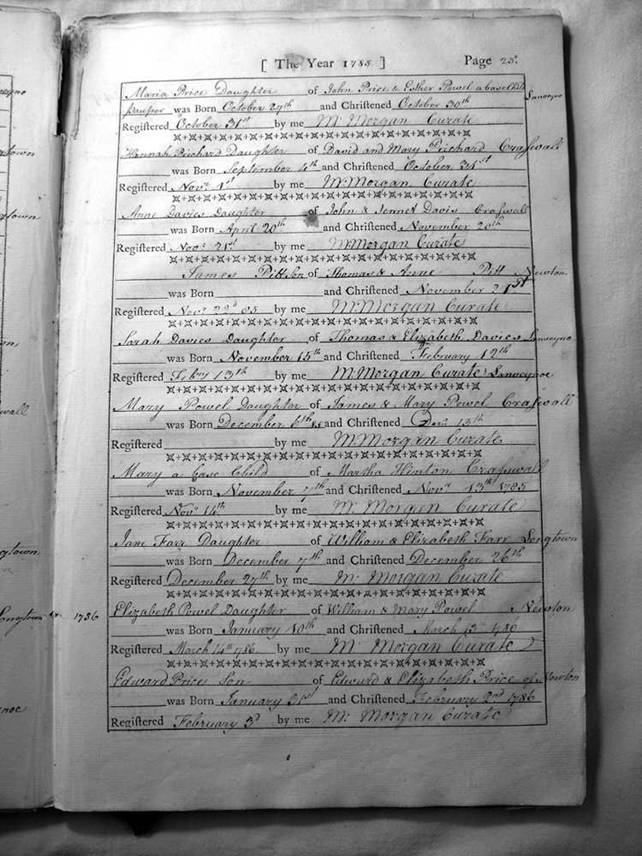 [ The Year 1785 ] Page 25.
Maria Price Daughter of John Price & Esther Powel a base Child Lanveyno
pauper was Born October 27th and Christened October 30th
Registered October 31st by me Wm Morgan Curate
Hannah Prichard Daughter of David and Mary Prichard Craswall
was Born September 4th and Christened October 31st
Registered Novr 1st by me Wm Morgan Curate
Anne Davies Daughter of John & Jennet Davis Craswall
was Born April 20th and Christened November 20th
Registered Novr 21st by me Wm Morgan Curate
James Pitt Son of Thomas & Anne Pitt Newton
was Born and Christened November 21st
Registered Novr 22d 85 by me Wm Morgan Curate
Sarah Davies Daughter of Thomas & Elizabeth Davies Lanveyno
was Born November 15th and Christened February 12th
Registered Febry 13th by me Wm Morgan Curate Lanveynoe
Mary Powel Daughter of James & Mary Powel Craswall
was Born December 6th 85 and Christened Decr 13th
Registered by me Wm Morgan Curate
Mary a base Child of Martha Hinton Craswall
was Born November 7th and Christened Novr 13th 1785
Registered Novr 14th by me Wm Morgan Curate
Jane Farr Daughter of William & Elizabeth Farr Longtown
was Born December 7th and Christened December 26th
Registered December 27th by me Wm Morgan Curate
1786 Elizabeth Powel Daughter of William & Mary Powel Newton
was Born January 10th and Christened March 13th 1786
Registered March 14th 786 by me Wm Morgan Curate
Edward Price Son of Edward & Elizabeth Price of Newton
was Born January 31st and Christened February 2nd 1786
Registered February 3d by me Wm Morgan Curate